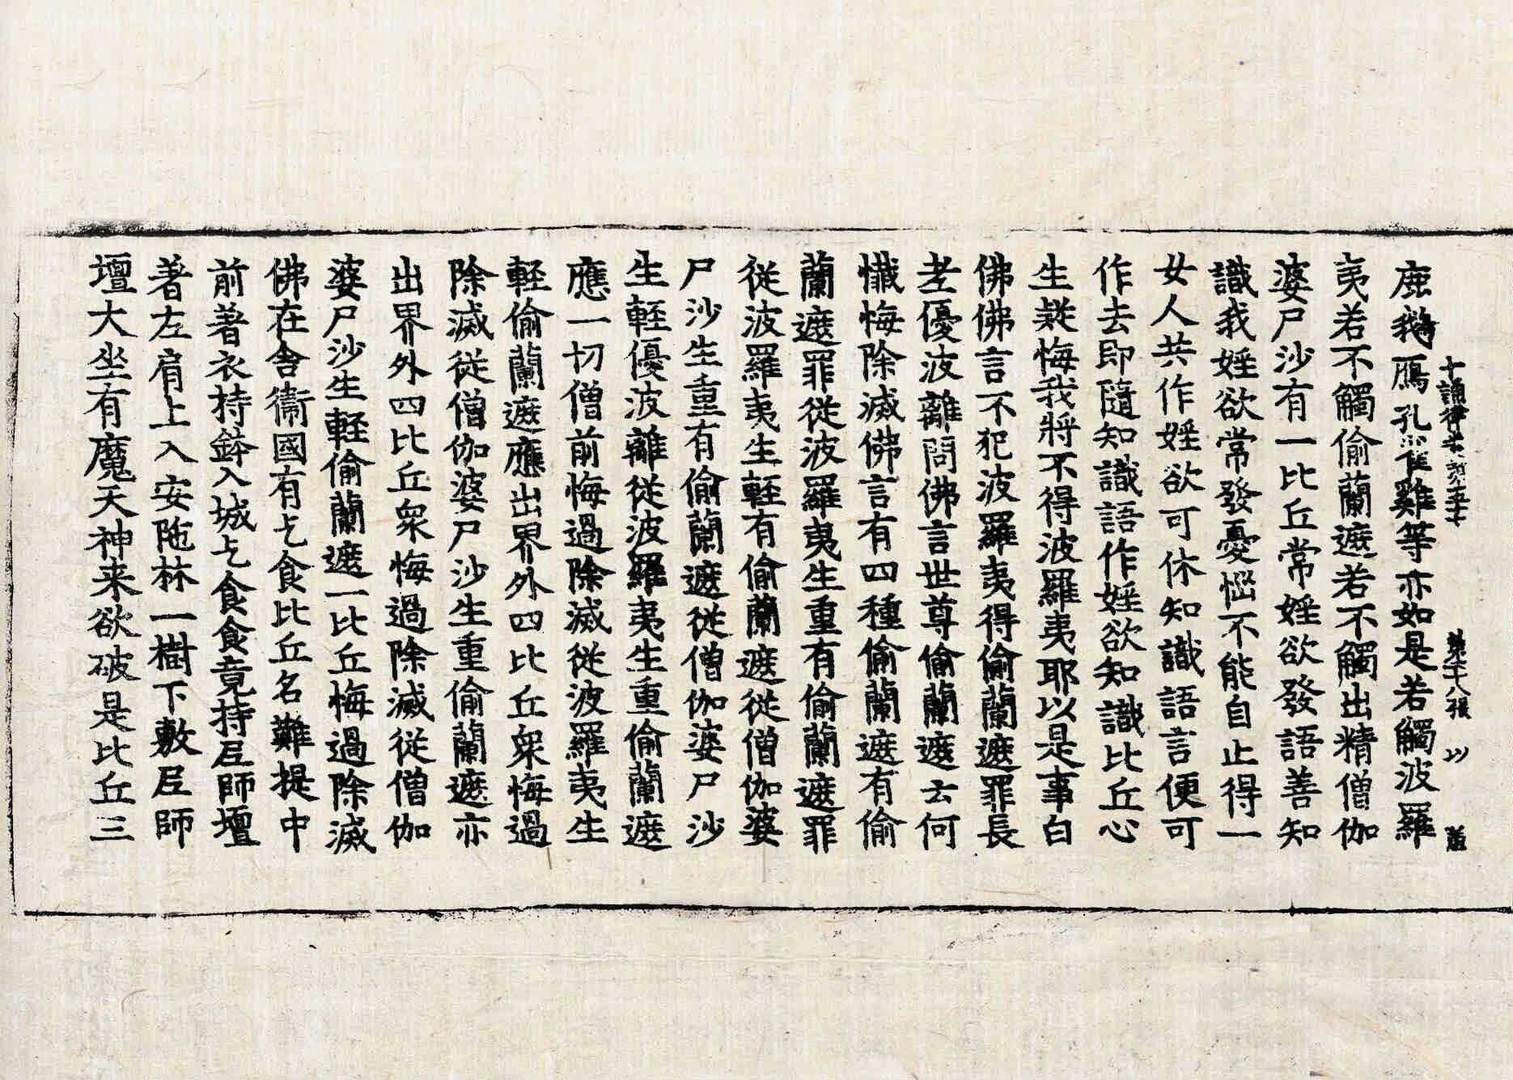 鹿鵝鴈孔雀雞等亦如是若觸波羅
十誦律 第 第十八張
夷若不觸偷蘭遮若不觸出精僧伽
婆尸沙有一比丘常婬欲發語善知
識我婬欲常發憂惱不能自止得一
女人共作婬欲可休知識語言便可
作去即隨知識語作婬欲知識比丘心
生疑悔我將不得波羅夷耶以是事白
佛佛言不犯波羅夷得偷蘭遮罪長
老優波離問佛言世尊偷蘭遮云何
懺悔除滅佛言有四種偷蘭遮有偷
蘭遮罪從波羅夷生重有偷蘭遮罪
從波羅夷生輕有偷蘭遮從僧伽婆
尸沙生重有偷蘭遮從僧伽婆尸沙
生輕優波離從波羅夷生重偷蘭遮
應一切僧前悔過除滅從波羅夷生
輕偷蘭遮應出界外四比丘衆悔過
除滅從僧伽婆尸沙生重偷蘭遮亦
出界外四比丘衆悔過除滅從僧伽
婆尸沙生輕偷蘭遮一比丘悔過除滅
佛在舍衞國有乞食比丘名難提中
前著衣持鉢入城乞食食竟持尼師壇
著左肩上入安陁林一樹下敷尼師
壇大坐有魔天神来欲破是比丘三